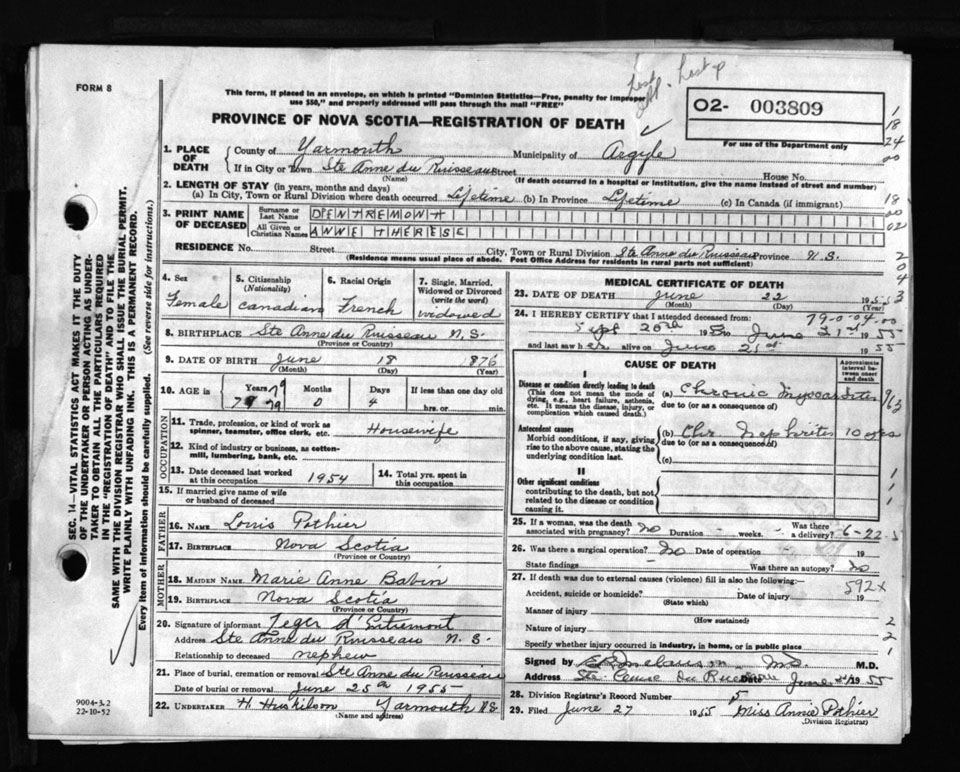 FORM 8
This form, if placed in an envelope, on which is printed "Dominion Statistics—Free, penalty for improper
use $50," and properly addressed will pass through the mail "FREE"
PROVINCE OF NOVA SCOTIA—REGISTRATION OF DEATH
O2- 003809
For use of the Department only
1. PLACE OF DEATH County of Yarmouth Municipality of Argyle
If in City or Town Ste Anne du Ruisseau Street House No.
(Name) (If death occurred in a hospital or institution, give the name instead of street and number)
2. LENGTH OF STAY (in years, months and days)
(a) In City, Town or Rural Division where death occurred Lifetime (b) In Province Lifetime (c) In Canada (if immigrant)
3. PRINT NAME OF DECEASED Surname or Last Name DENTREMONT
All Given or Christian Names ANNE THERESE
RESIDENCE No. Street City, Town or Rural Division Ste Anne du Ruisseau Province N.S.
(Residence means usual place of abode. Post Office Address for residents in rural parts not sufficient)
4. Sex Female
5. Citizenship (Nationality) Canadian
6. Racial Origin French
7. Single, Married, Widowed or Divorced (write the word) widowed
8. BIRTHPLACE Ste Anne du Ruisseau N.S.
(Province or Country)
9. DATE OF BIRTH June 18 1876
(Month) (Day) (Year)
10. AGE in Years 79 Months 0 Days 4 If less than one day old
hrs. or min.
OCCUPATION
11. Trade, profession, or kind of work as spinner, teamster, office clerk, etc. Housewife
12. Kind of industry or business, as cotton-mill, lumbering, bank, etc.
13. Date deceased last worked at this occupation 1954
14. Total yrs. spent in this occupation
15. If married give name of wife or husband of deceased
FATHER
16. NAME Louis Pothier
17. BIRTHPLACE Nova Scotia
(Province or Country)
MOTHER
18. MAIDEN NAME Marie Anne Babin
19. BIRTHPLACE Nova Scotia
(Province or Country)
20. Signature of informant Leger d'Entremont
Address Ste Anne du Ruisseau N.S.
Relationship to deceased nephew
21. Place of burial, cremation or removal Ste Anne du Ruisseau
Date of burial or removal June 25th 1955
22. UNDERTAKER H. Huskilson Yarmouth N.S.
(Name and address)
MEDICAL CERTIFICATE OF DEATH
23. DATE OF DEATH June 22 1955
(Month) (Day) (Year)
24. I HEREBY CERTIFY that I attended deceased from: 79-0-04-00
Sept 20th to June 21st 1955
and last saw her alive on June 21st 1955
CAUSE OF DEATH
Approximate interval between onset and death
I
Disease or condition directly leading to death
(This does not mean the mode of dying, e.g., heart failure, asthenia, etc. It means the disease, injury, or complication which caused death.)
(a) Chronic Myocarditis
due to (or as a consequence of)
Antecedent causes
Morbid conditions, if any, giving rise to the above cause, stating the underlying condition last.
(b) Chr. Nephritis 10 yrs
due to (or as a consequence of)
(c)
II
Other significant conditions
contributing to the death, but not related to the disease or condition causing it.
25. If a woman, was the death associated with pregnancy? No Duration - weeks. Was there a delivery? 6-22-5
26. Was there a surgical operation? No Date of operation 19
State findings Was there an autopsy? No
27. If death was due to external causes (violence) fill in also the following:—
592X
Accident, suicide or homicide? Date of injury 19
(State which)
Manner of injury
(How sustained)
Nature of injury
Specify whether injury occurred in industry, in home, or in public place
Signed by M.D.
Address Date June 1955
28. Division Registrar's Record Number 5
29. Filed June 27 1955 Miss Annie Pothier
(Division Registrar)
SEC. 14—VITAL STATISTICS ACT MAKES IT THE DUTY
OF THE UNDERTAKER OR PERSON ACTING AS UNDER-
TAKER TO OBTAIN ALL THE PARTICULARS REQUIRED
IN THE "REGISTRATION OF DEATH" AND TO FILE THE
SAME WITH THE DIVISION REGISTRAR WHO SHALL ISSUE THE BURIAL PERMIT.
WRITE PLAINLY WITH UNFADING INK. THIS IS A PERMANENT RECORD.
Every item of information should be carefully supplied. (See reverse side for instructions.)
9004-3.2
22-10-52